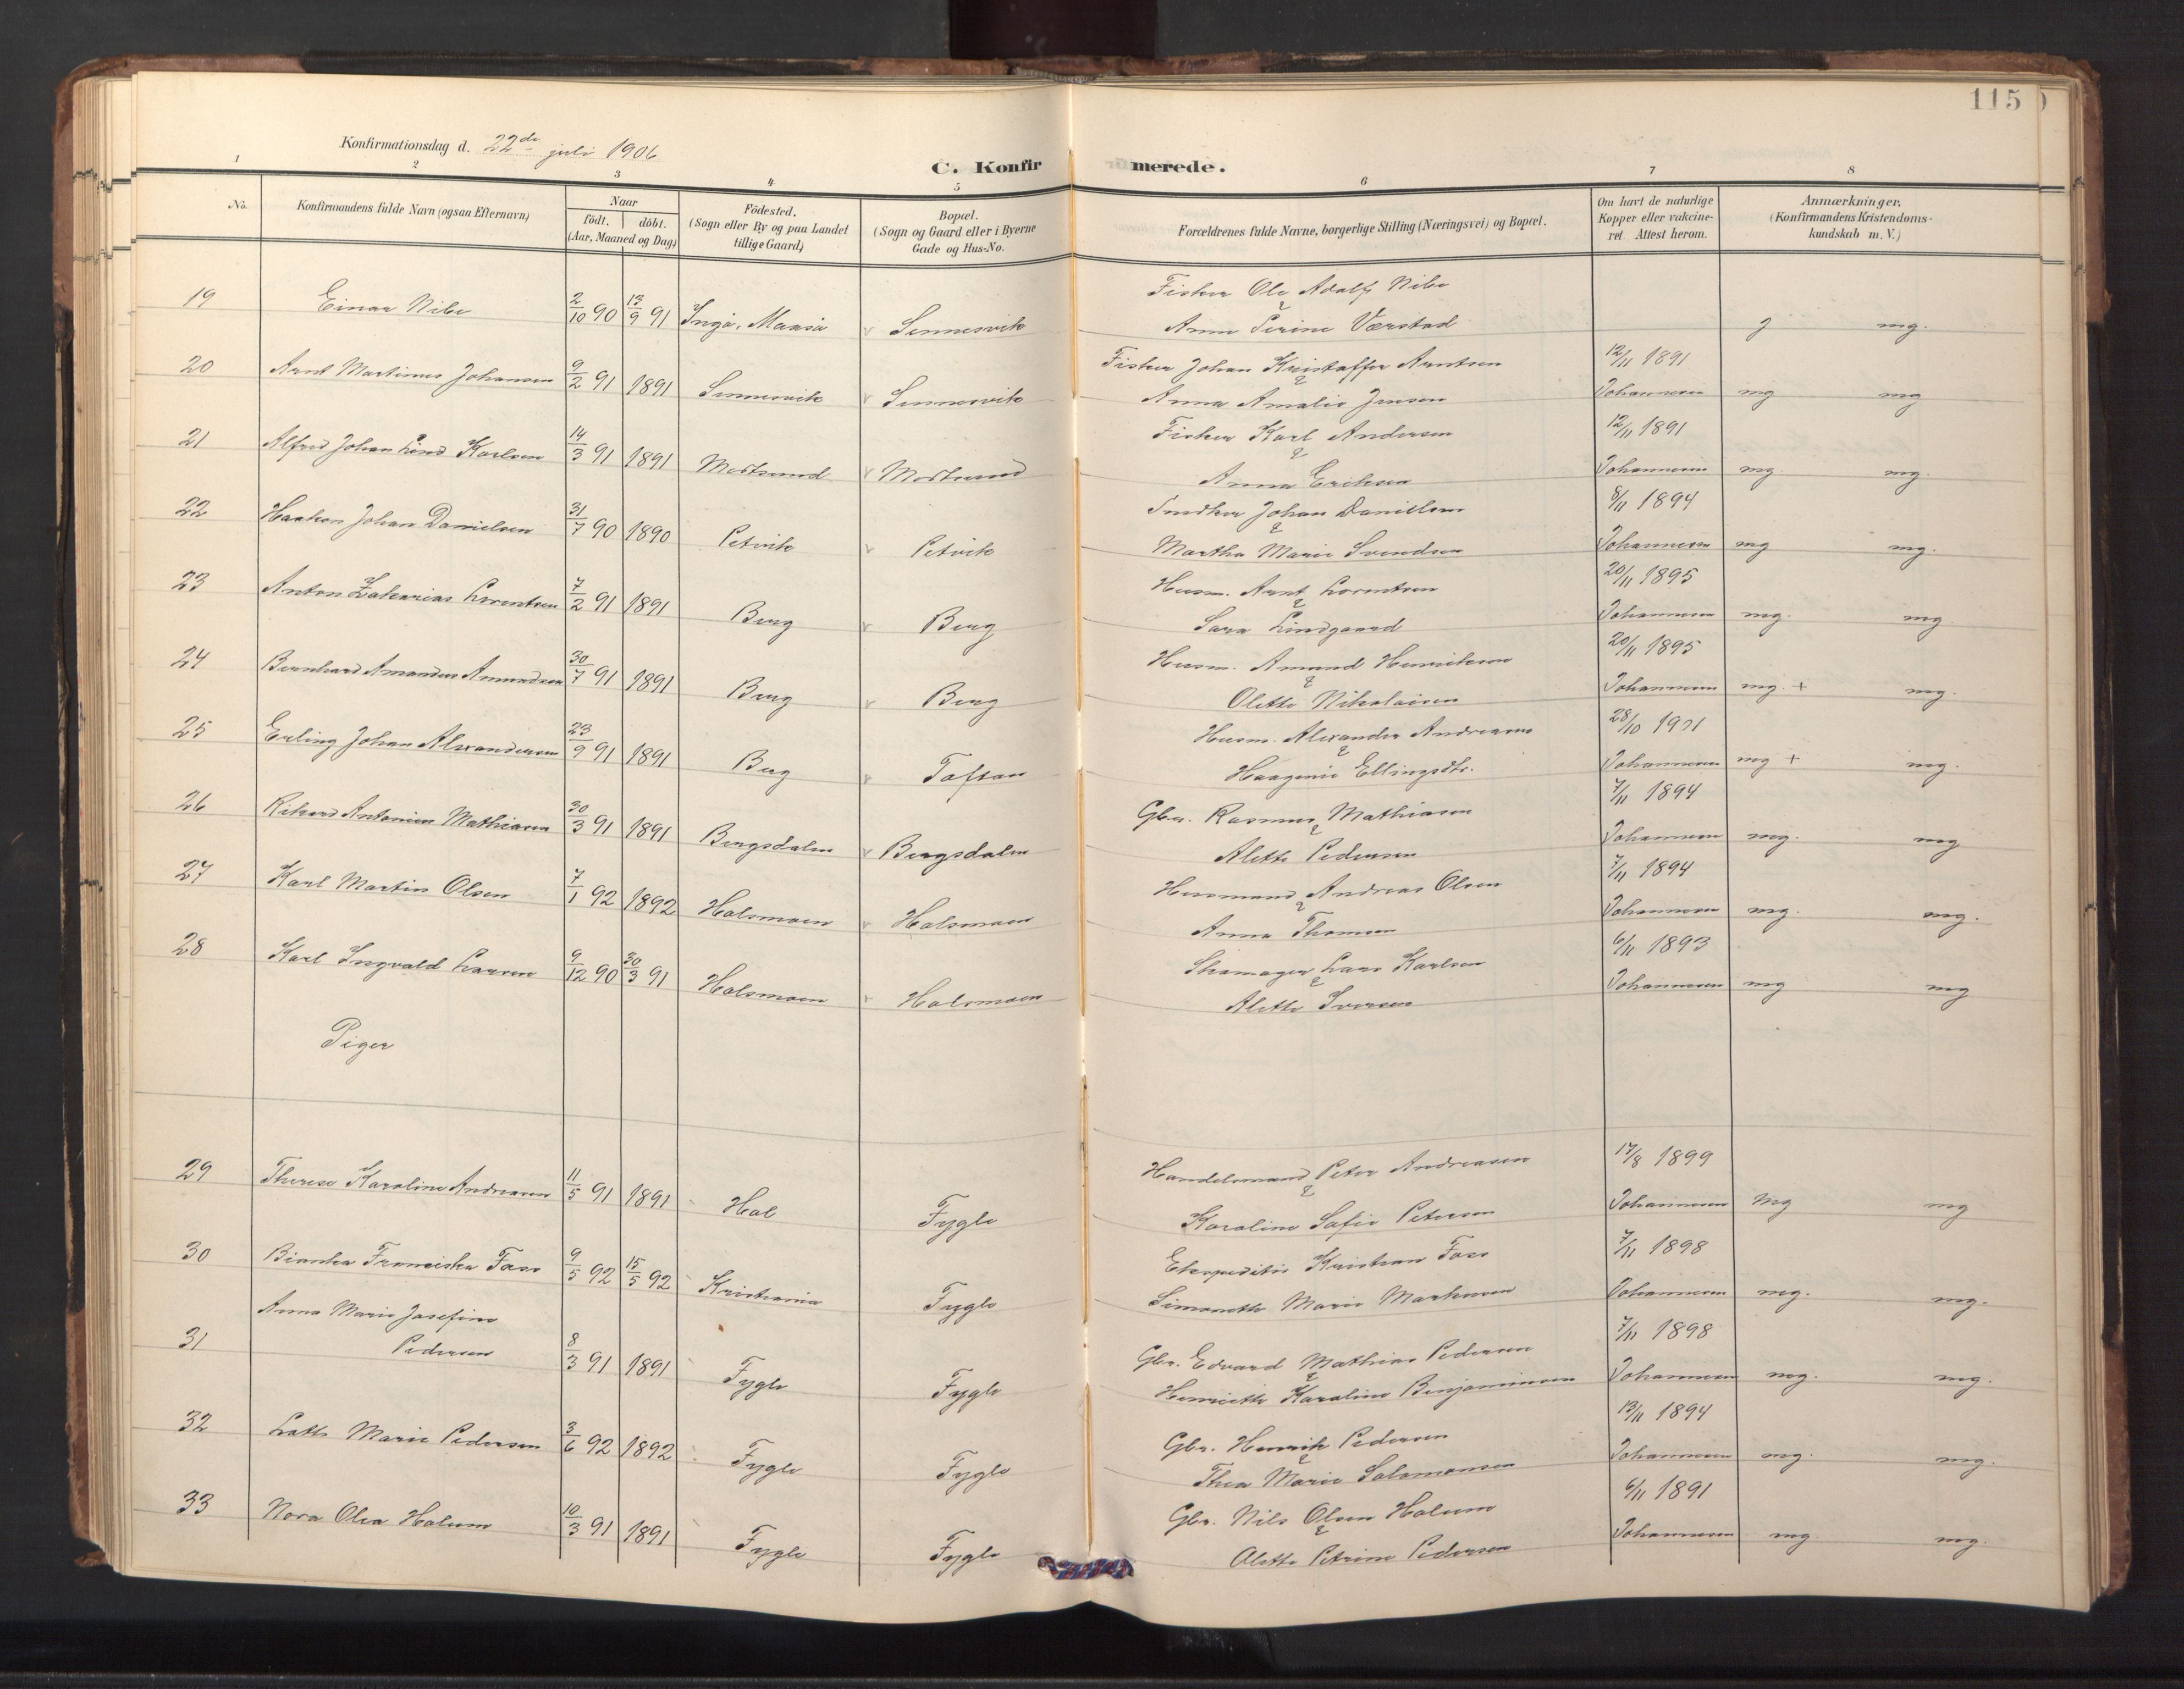 115
Konfirmationsdag d. 22de juli 1906
C. Konfirmerede.
1 2 3 4 5 6 7 8
No.
Konfirmandens fulde Navn (ogsaa Efternavn)
Naar
födt. döbt.
(Aar, Maaned og Dag)
Födested.
(Sogn eller By og paa Landet
tillige Gaard)
Bopæl.
(Sogn og Gaard eller i Byerne
Gade og Hus-No.
Forældrenes fulde Navne, borgerlige Stilling (Næringsvei) og Bopæl.
Om havt de naturlige
Kopper eller vakcine-
ret. Attest herom.
Anmærkninger.
(Konfirmandens Kristendoms-
kundskab m. V.)
Fisker Ole Adolf Nibe
19 Einar Nibe 2/10 90 13/9 91 Ingö, Maasö v Sennesvik & Anna Perine Værstad g mg.
Fisker Johan Kristoffer Arntsen 12/11 1891
20 Arnt Martinus Johansen 9/2 91 1891 Sennesvik v Sennesvik & Anna Amalie Jensen Johannesen mg mg
Fisker Karl Andersen 12/11 1891
21 Alfred Johan Lind Karlsen 14/3 91 1891 Mortsund v Mortsund & Anna Eriksen Johannesen mg. mg.
Snedker Johan Danielsen 8/11 1894
22 Haakon Johan Danielsen 31/7 90 1890 Petvik v Petvik & Martha Marie Svendsen Johannesen mg mg.
Husm. Arnt Lorentsen 20/11 1895
23 Anton Zakarias Lorentsen 7/2 91 1891 Berg v Berg & Sara Lindgaard Johannesen mg. mg.
Husm. Amund Henriksen 20/11 1895
24 Bernhard Amandus Amundsen 30/7 91 1891 Berg v Berg & Olette Nikolaisen Johannesen mg. + mg.
Husm. Alexander Andreasen 28/10 1901
25 Erling Johan Alexandersen 23/9 91 1891 Berg v Toftan & Haagenie Ellingsdtr. Johannesen mg + mg.
Gbr. Rasmus Mathiasen 7/11 1894
26 Rikard Antonius Mathiasen 30/3 91 1891 Bergsdalen v Bergsdalen & Alette Pedersen Johannesen mg. mg
Husmand Andreas Olsen 7/11 1894
27 Karl Martin Olsen 7/1 92 1892 Holsmoen v Holsmoen & Anna Thomsen Johannesen mg. mg.
Skomager Lars Karlsen 6/11 1893
28 Karl Ingvald Larsen 9/12 90 30/3 91 Holsmoen v Holsmoen & Alette Iversen Johannesen mg mg
Piger
Handelsmand Peter Andreasen 17/8 1899
29 Therese Karoline Andreasen 11/5 91 1891 Hol Fygle & Karoline Sofie Petersen Johannesen mg mg
Ekspeditør Kristian Foss 7/11 1898
30 Bianka Franciska Foss 9/5 92 15/5 92 Kristiania Fygle Simonette Marie Markussen Johannesen mg. mg.
Anna Marie Josefine
Gbr. Edvard Mathias Pedersen 7/11 1898
31 Pedersen 8/3 91 1891 Fygle Fygle & Henriette Karoline Benjaminsen Johannesen mg. mg.
Gbr. Henrik Pedersen 13/11 1894
32 Lotte Marie Pedersen 3/6 92 1892 Fygle Fygle & Thea Marie Salomonsen Johannesen mg. mg.
Gbr. Nils Olsen Holum 6/11 1891
33 Nora Olea Holum 10/3 91 1891 Fygle Fygle & Olette Petrine Pedersen Johannesen mg. mg.